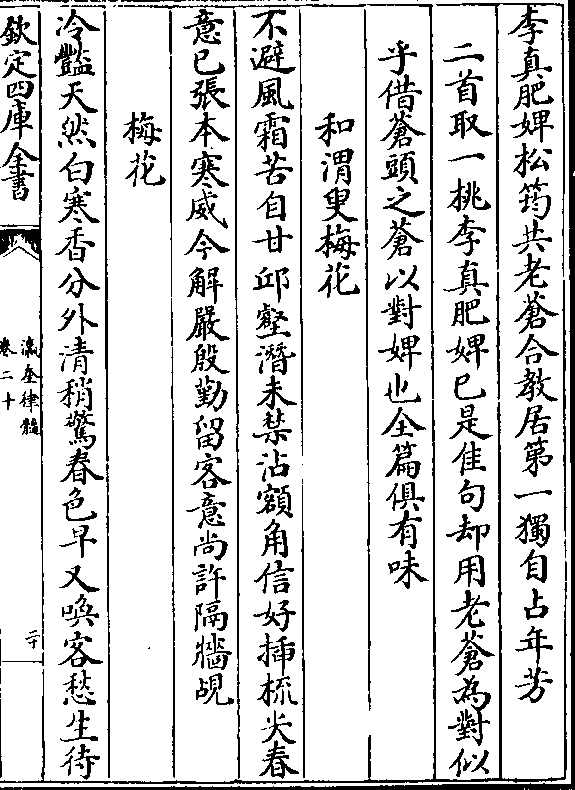 李真肥婢松筠共老蒼合教居第一獨自占年芳
二首取一桃李真肥婢已是佳句却用老蒼為對似
乎借蒼頭之蒼以對婢也全篇俱有味
和渭叟梅花
不避風霜苦自甘邱壑潛未禁沾額角信好揷梳尖春
意已張本寒威今解嚴殷勤留客意尚許隔牆覘
梅花
冷豔天然白寒香分外清稍驚春色早又喚客愁生待
欽定四庫全書
瀛奎律髓
卷二十
二十